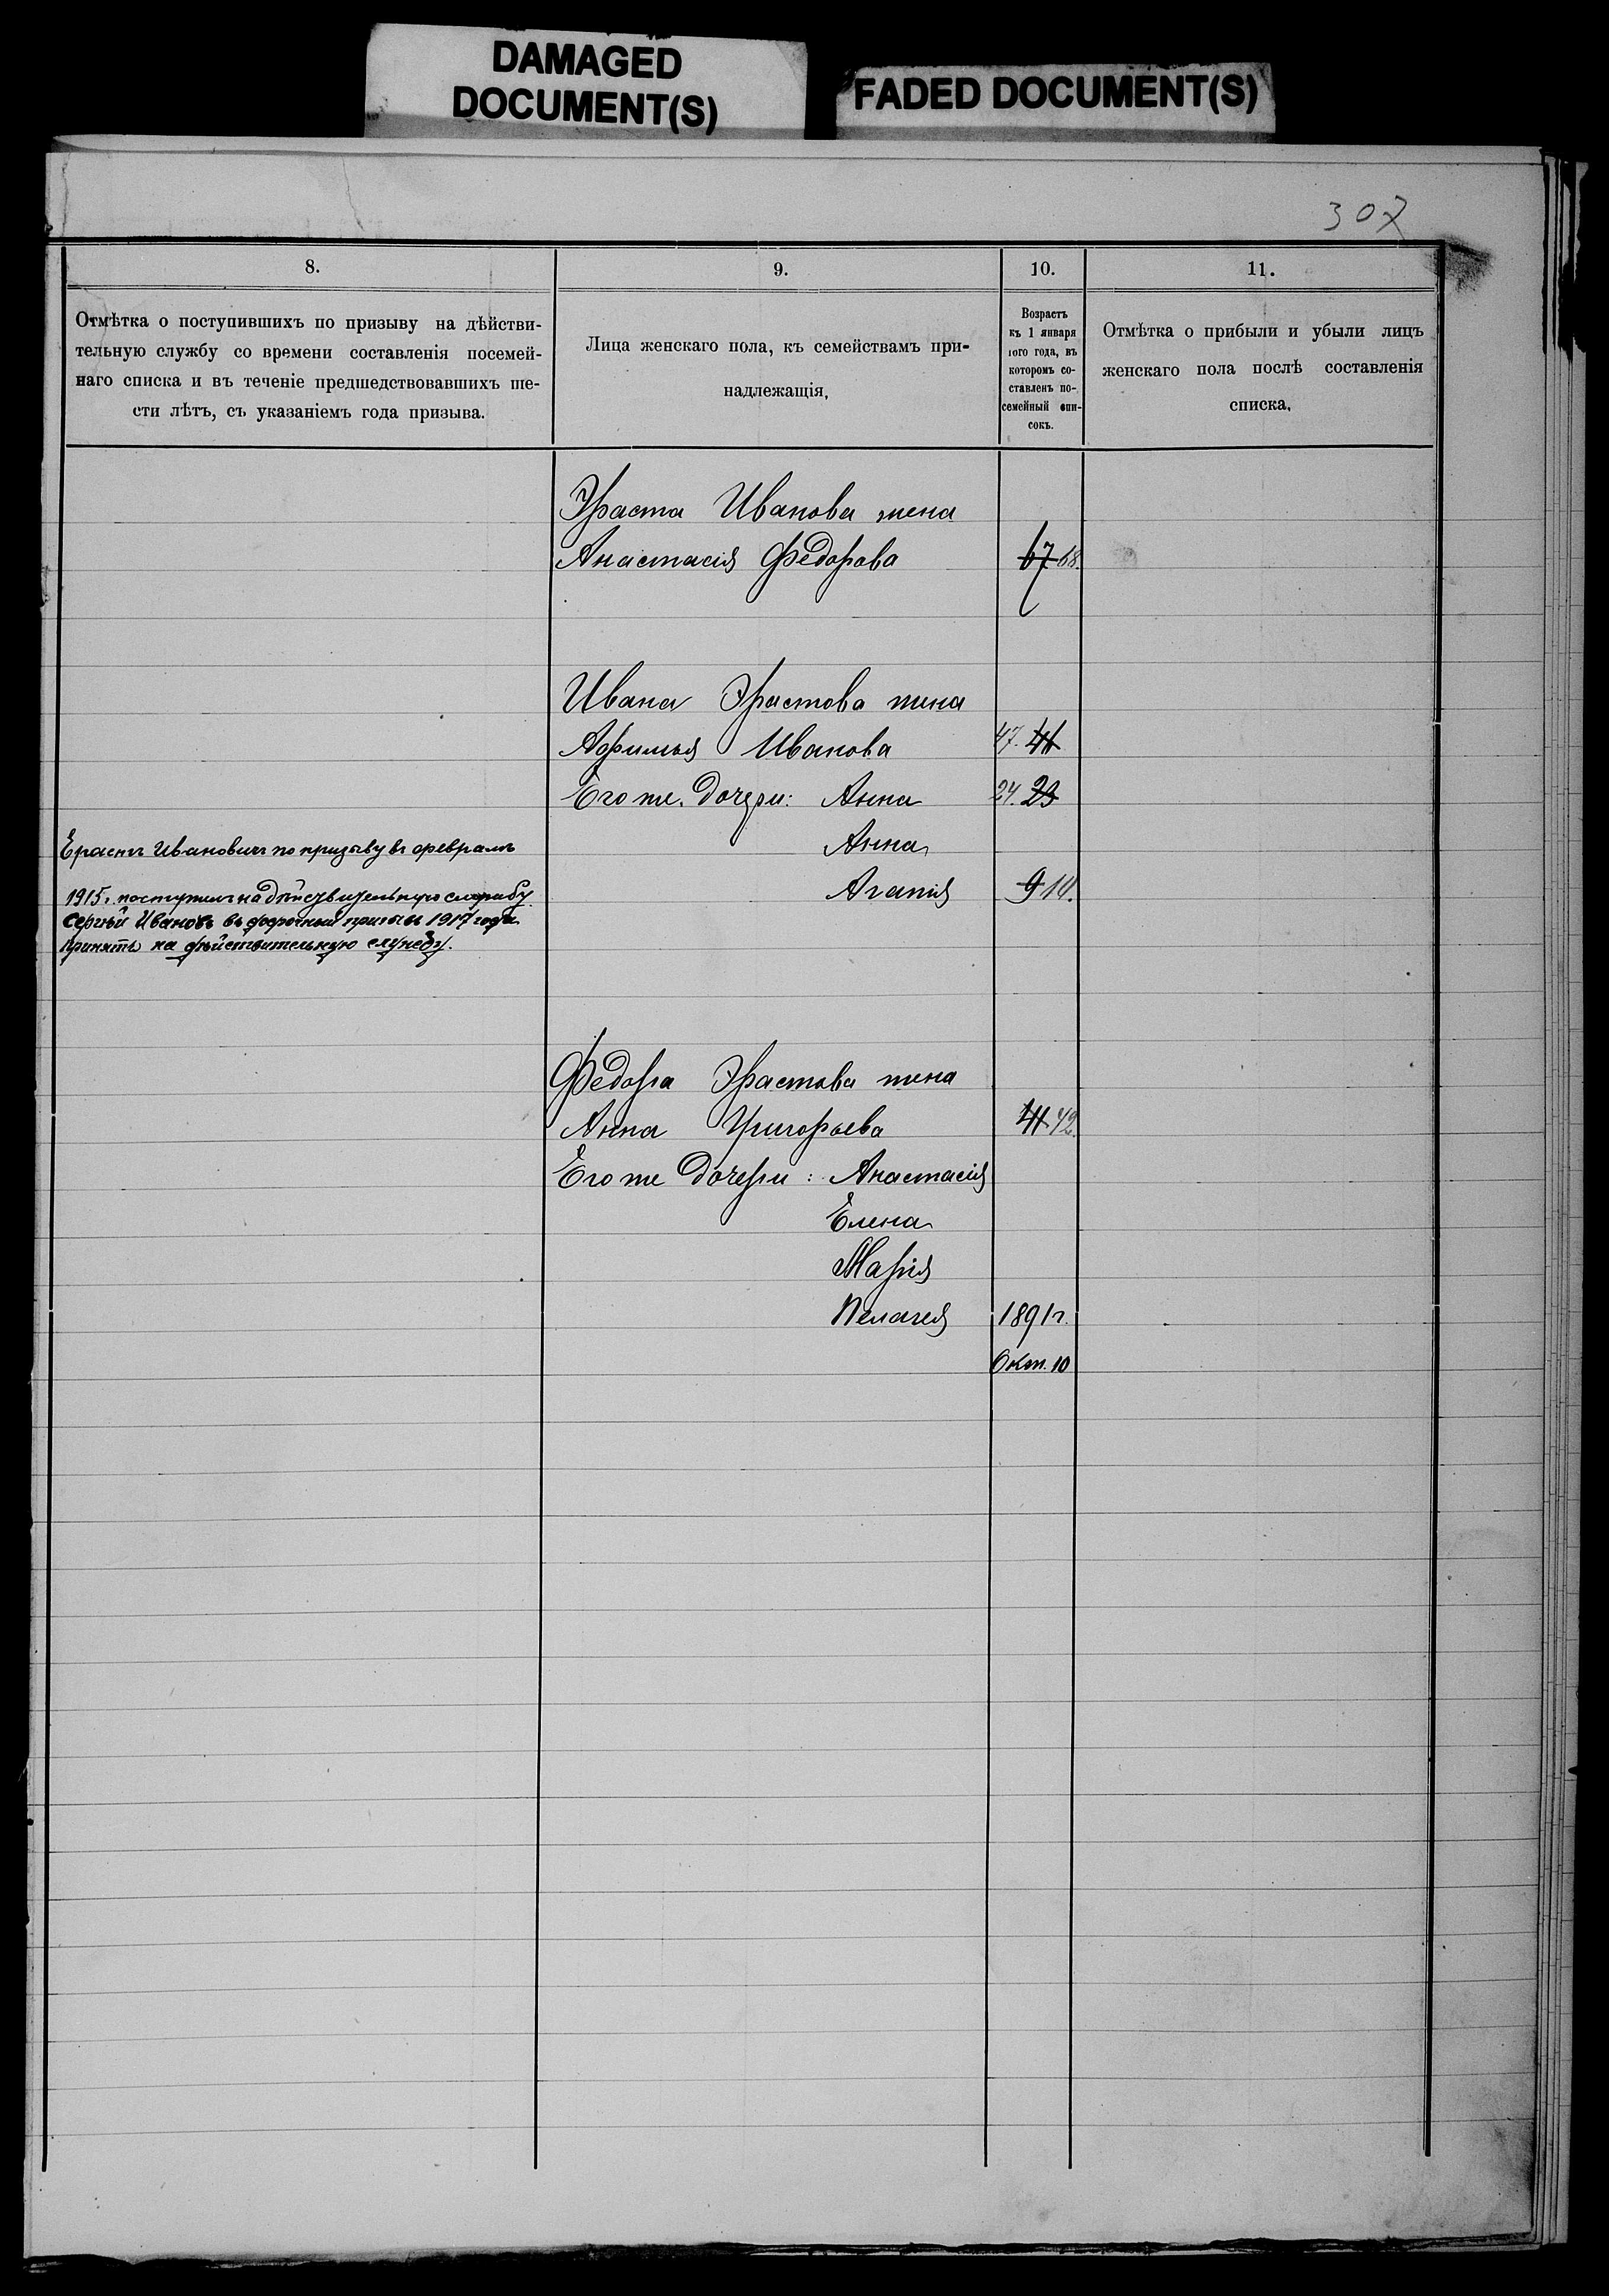 DAMAGED
DOCUMENT(S)
FADED DOCUMENT(S)
307
8.
Отмѣтка о поступившихъ по призыву на дѣйстви-
тельную службу со времени составленія посемей-
наго списка и въ теченіе предшедствовавшихъ ше-
сти лѣтъ, съ указаніемъ года призыва.
9.
Лица женскаго пола, къ семействамъ при-
надлежащія,
10.
Возрастъ
къ 1 января
того года, въ
которомъ со-
ставленъ по-
семейный спи-
сокъ.
11.
Отмѣтка о прибыли и убыли лицъ
женскаго пола послѣ составленія
списка,
Эраста Иванова жена
Анастасія Федорова 67 68.
Ивана Эрастова жена
Афимья Иванова 47. 41
Его же дочери: Анна 24. 23
Анна
Агапія 9 10.
Ерастъ Ивановичъ по призыву въ февралѣ
1915г. поступилъ на дѣйствительную службу
Сергѣй Ивановъ въ досрочный призывъ 1917 года
принятъ на дѣйствительную службу.
Федора Эрастова жена
Анна Григорьева 41 42.
Его же дочери: Анастасія
Елена
Марія
Пелагея 1891г.
Окт. 10